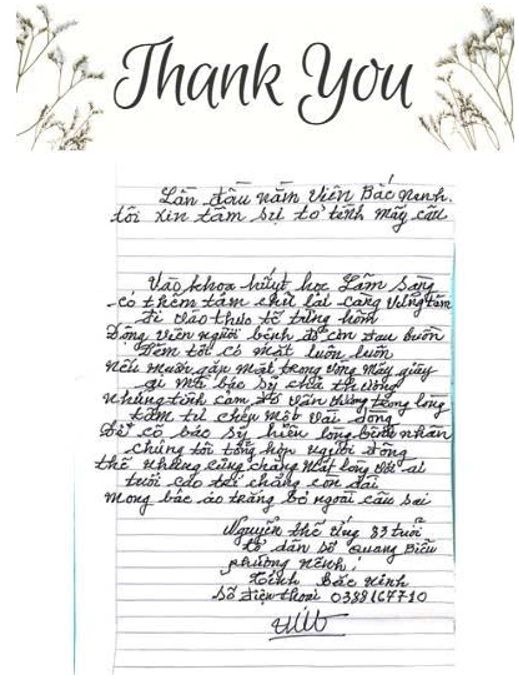 Thank You
Lần đầu nằm viện Bắc Ninh.
tôi xin tâm sự tỏ tình mấy câu
Vào khoa huyết học Lâm sàng
có thêm tám chữ lại càng vững tâm
đi vào thực tế từng hôm
Động viên người bệnh đỡ cơn đau buồn
Đêm tốt có mặt luôn luôn
nếu muốn gặp mặt trong vòng mấy giây
bác sỹ
những tình cảm đó vẫn trong lòng
tâm tư chép một vài dòng
Để cô bác sỹ hiểu lòng bệnh nhân
chúng tôi tổng hợp người đông
thế nhưng cũng chẳng mất lòng với ai
tuổi cao trí chẳng còn dài
mong bác áo trắng bỏ ngoài câu sai
Nguyễn thế ứng 83 tuổi
tổ dân số Quang Biểu
phường nếnh
tỉnh Bắc Ninh
Số điện thoại 0388167710